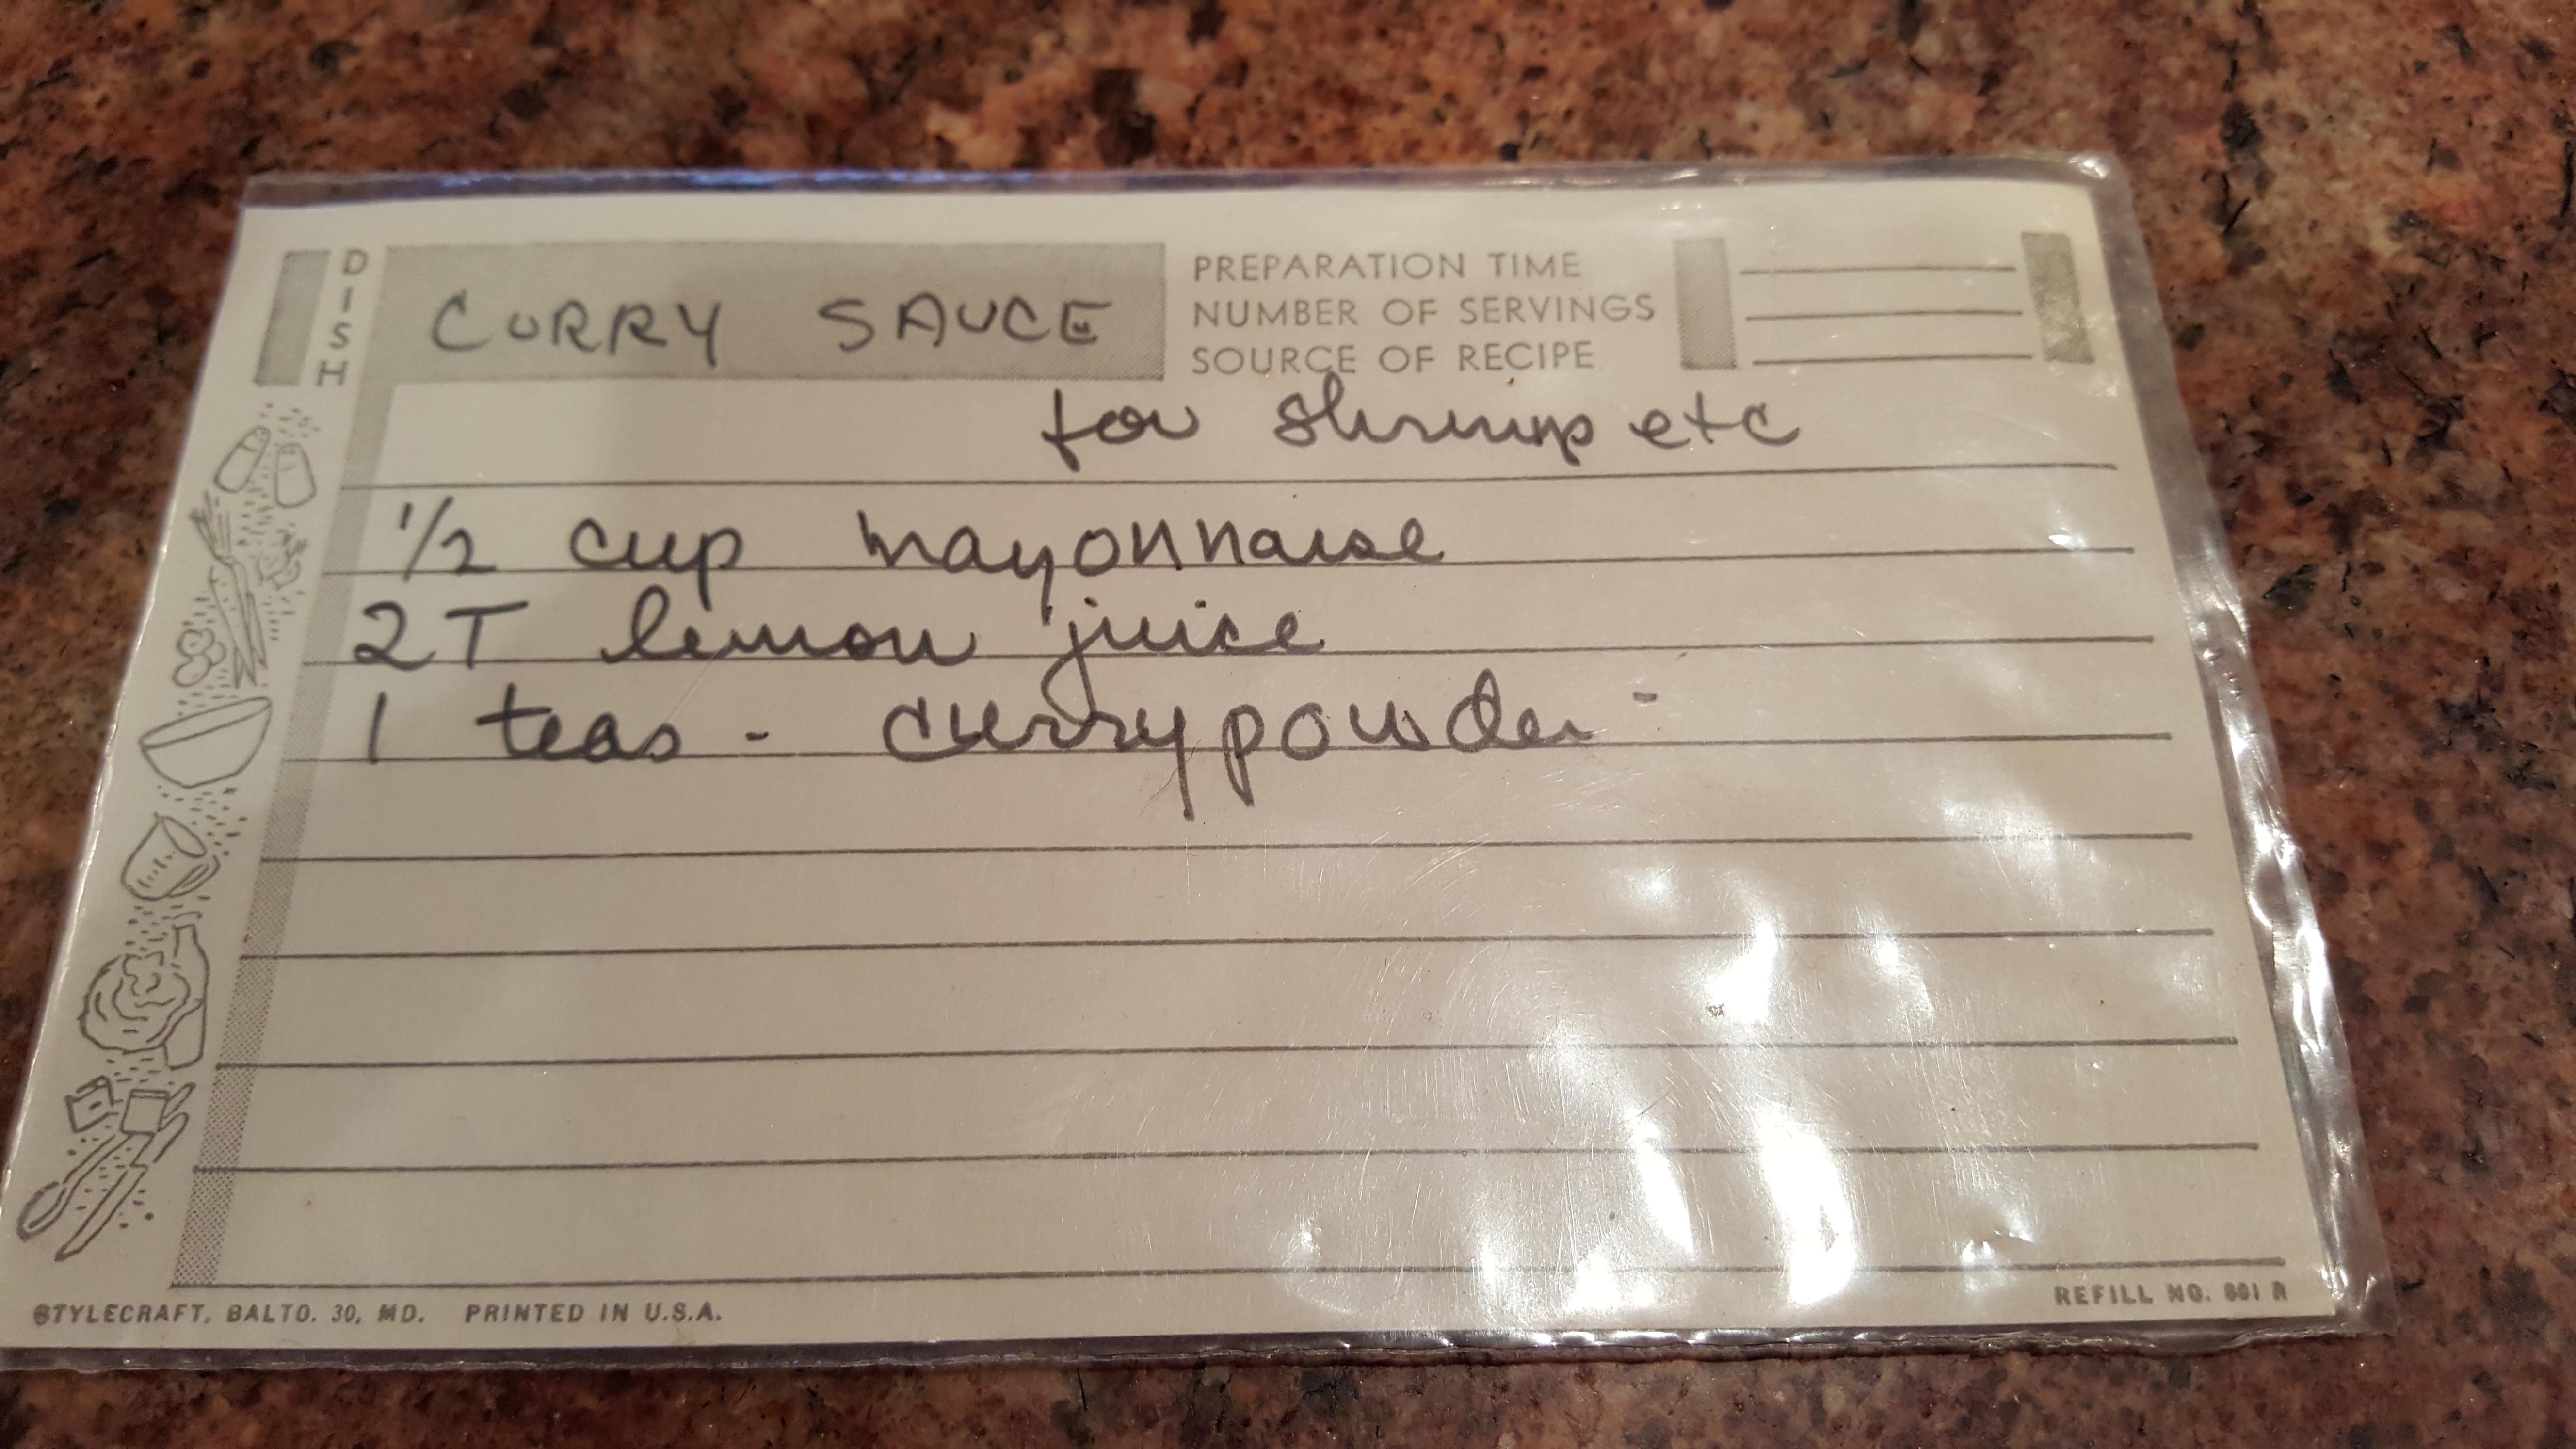 DISH
CURRY SAUCE
PREPARATION TIME
NUMBER OF SERVINGS
SOURCE OF RECIPE
for shrimp etc
1/2 cup mayonnaise
2 T lemon juice
1 teas - curry powder -
STYLECRAFT, BALTO. 30, MD. PRINTED IN U.S.A.
REFILL NO. 801 R